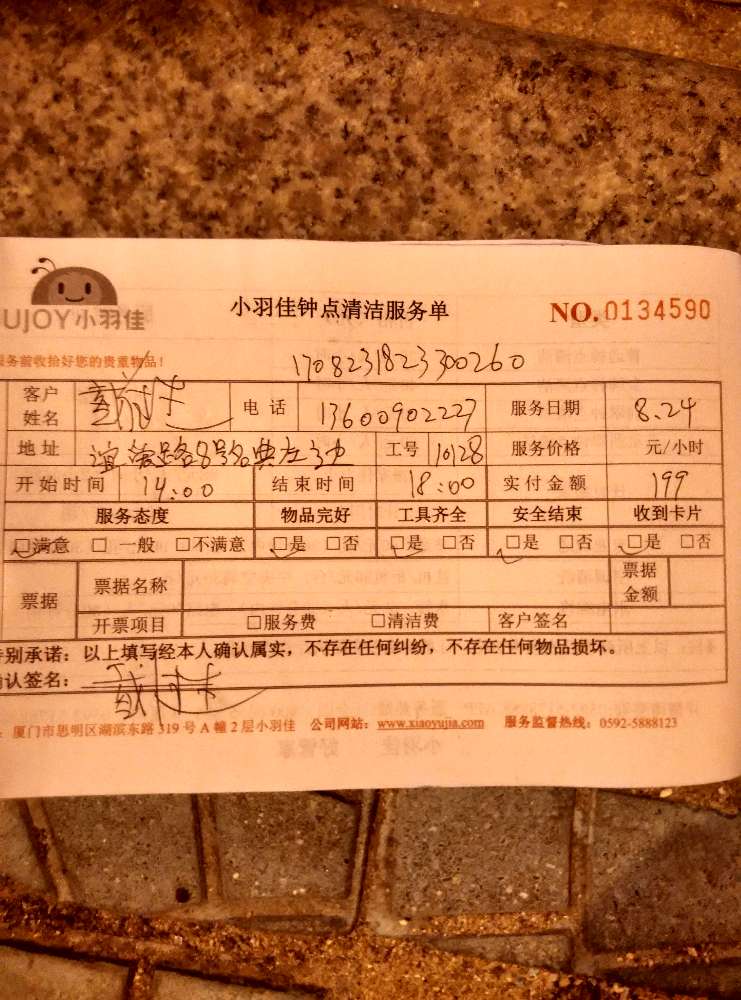 UJOY小羽佳 小羽佳钟点清洁服务单 NO.0134590
务前收拾好您的贵重物品!
1708231823300260
客户姓名 电话 13600902227 服务日期 8.24
地址 工号 10128 服务价格 元/小时
开始时间 14:00 结束时间 18:00 实付金额 199
服务态度 物品完好 工具齐全 安全结束 收到卡片
□满意 □一般 □不满意 □是 □否 □是 □否 □是 □否 □是 □否
票据 票据名称 票据金额
开票项目 □服务费 □清洁费 客户签名
别承诺:以上填写经本人确认属实,不存在任何纠纷,不存在任何物品损坏。
认签名:
厦门市思明区湖滨东路319号A幢2层小羽佳 公司网站:www.xiaoyujia.com 服务监督热线:0592-5888123